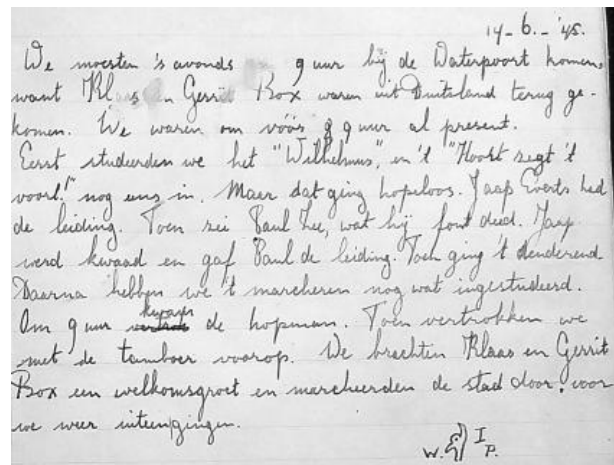 14-6.-'45.
We moesten 's avonds 9 uur bij de Waterpoort komen,
want Klaas en Gerrit Box waren uit Duitsland terug ge-
komen. We waren om vóór 9 uur al present.
Eerst studeerden we het "Wilhelmus", en 't "Hoort zegt 't
voort!" nog eens in. Maar dat ging hopeloos. Jaap Everts had
de leiding. Toen zei Paul Lee, wat hij fout deed. Jaap
werd kwaad en gaf Paul de leiding. Toen ging 't denderend
Daarna hebben we 't marcheren nog wat ingestudeerd.
Om 9 uur kwam de hopman. Toen vertrokken we
met de tamboer voorop. We brachten Klaas en Gerrit
Box een welkomsgroet en marcheerden de stad door, voor
we weer uiteengingen.
W. I
P.